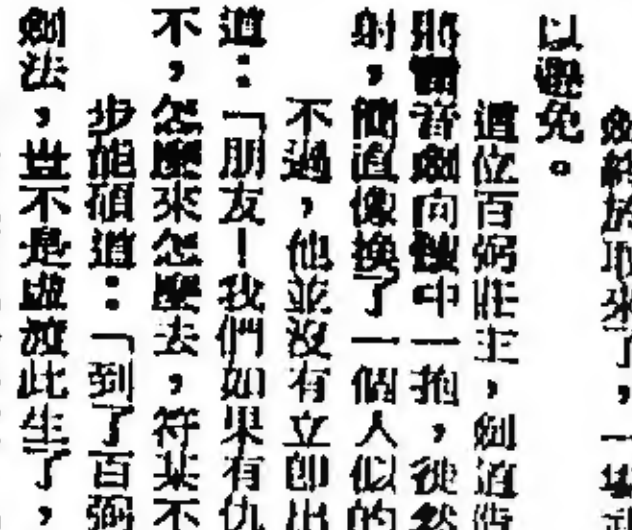 劍終於取來了，一場
以避免。
這位百弼莊主，劍道
將雷音劍向懷中一抱，
射，簡直像換了一個人似的
不過，他並沒有立即出
道：「朋友！我們如果有仇
不，怎麼來怎麼去，符某不
步能碩道：「到了百弼
劍法，豈不是虛渡此生了，